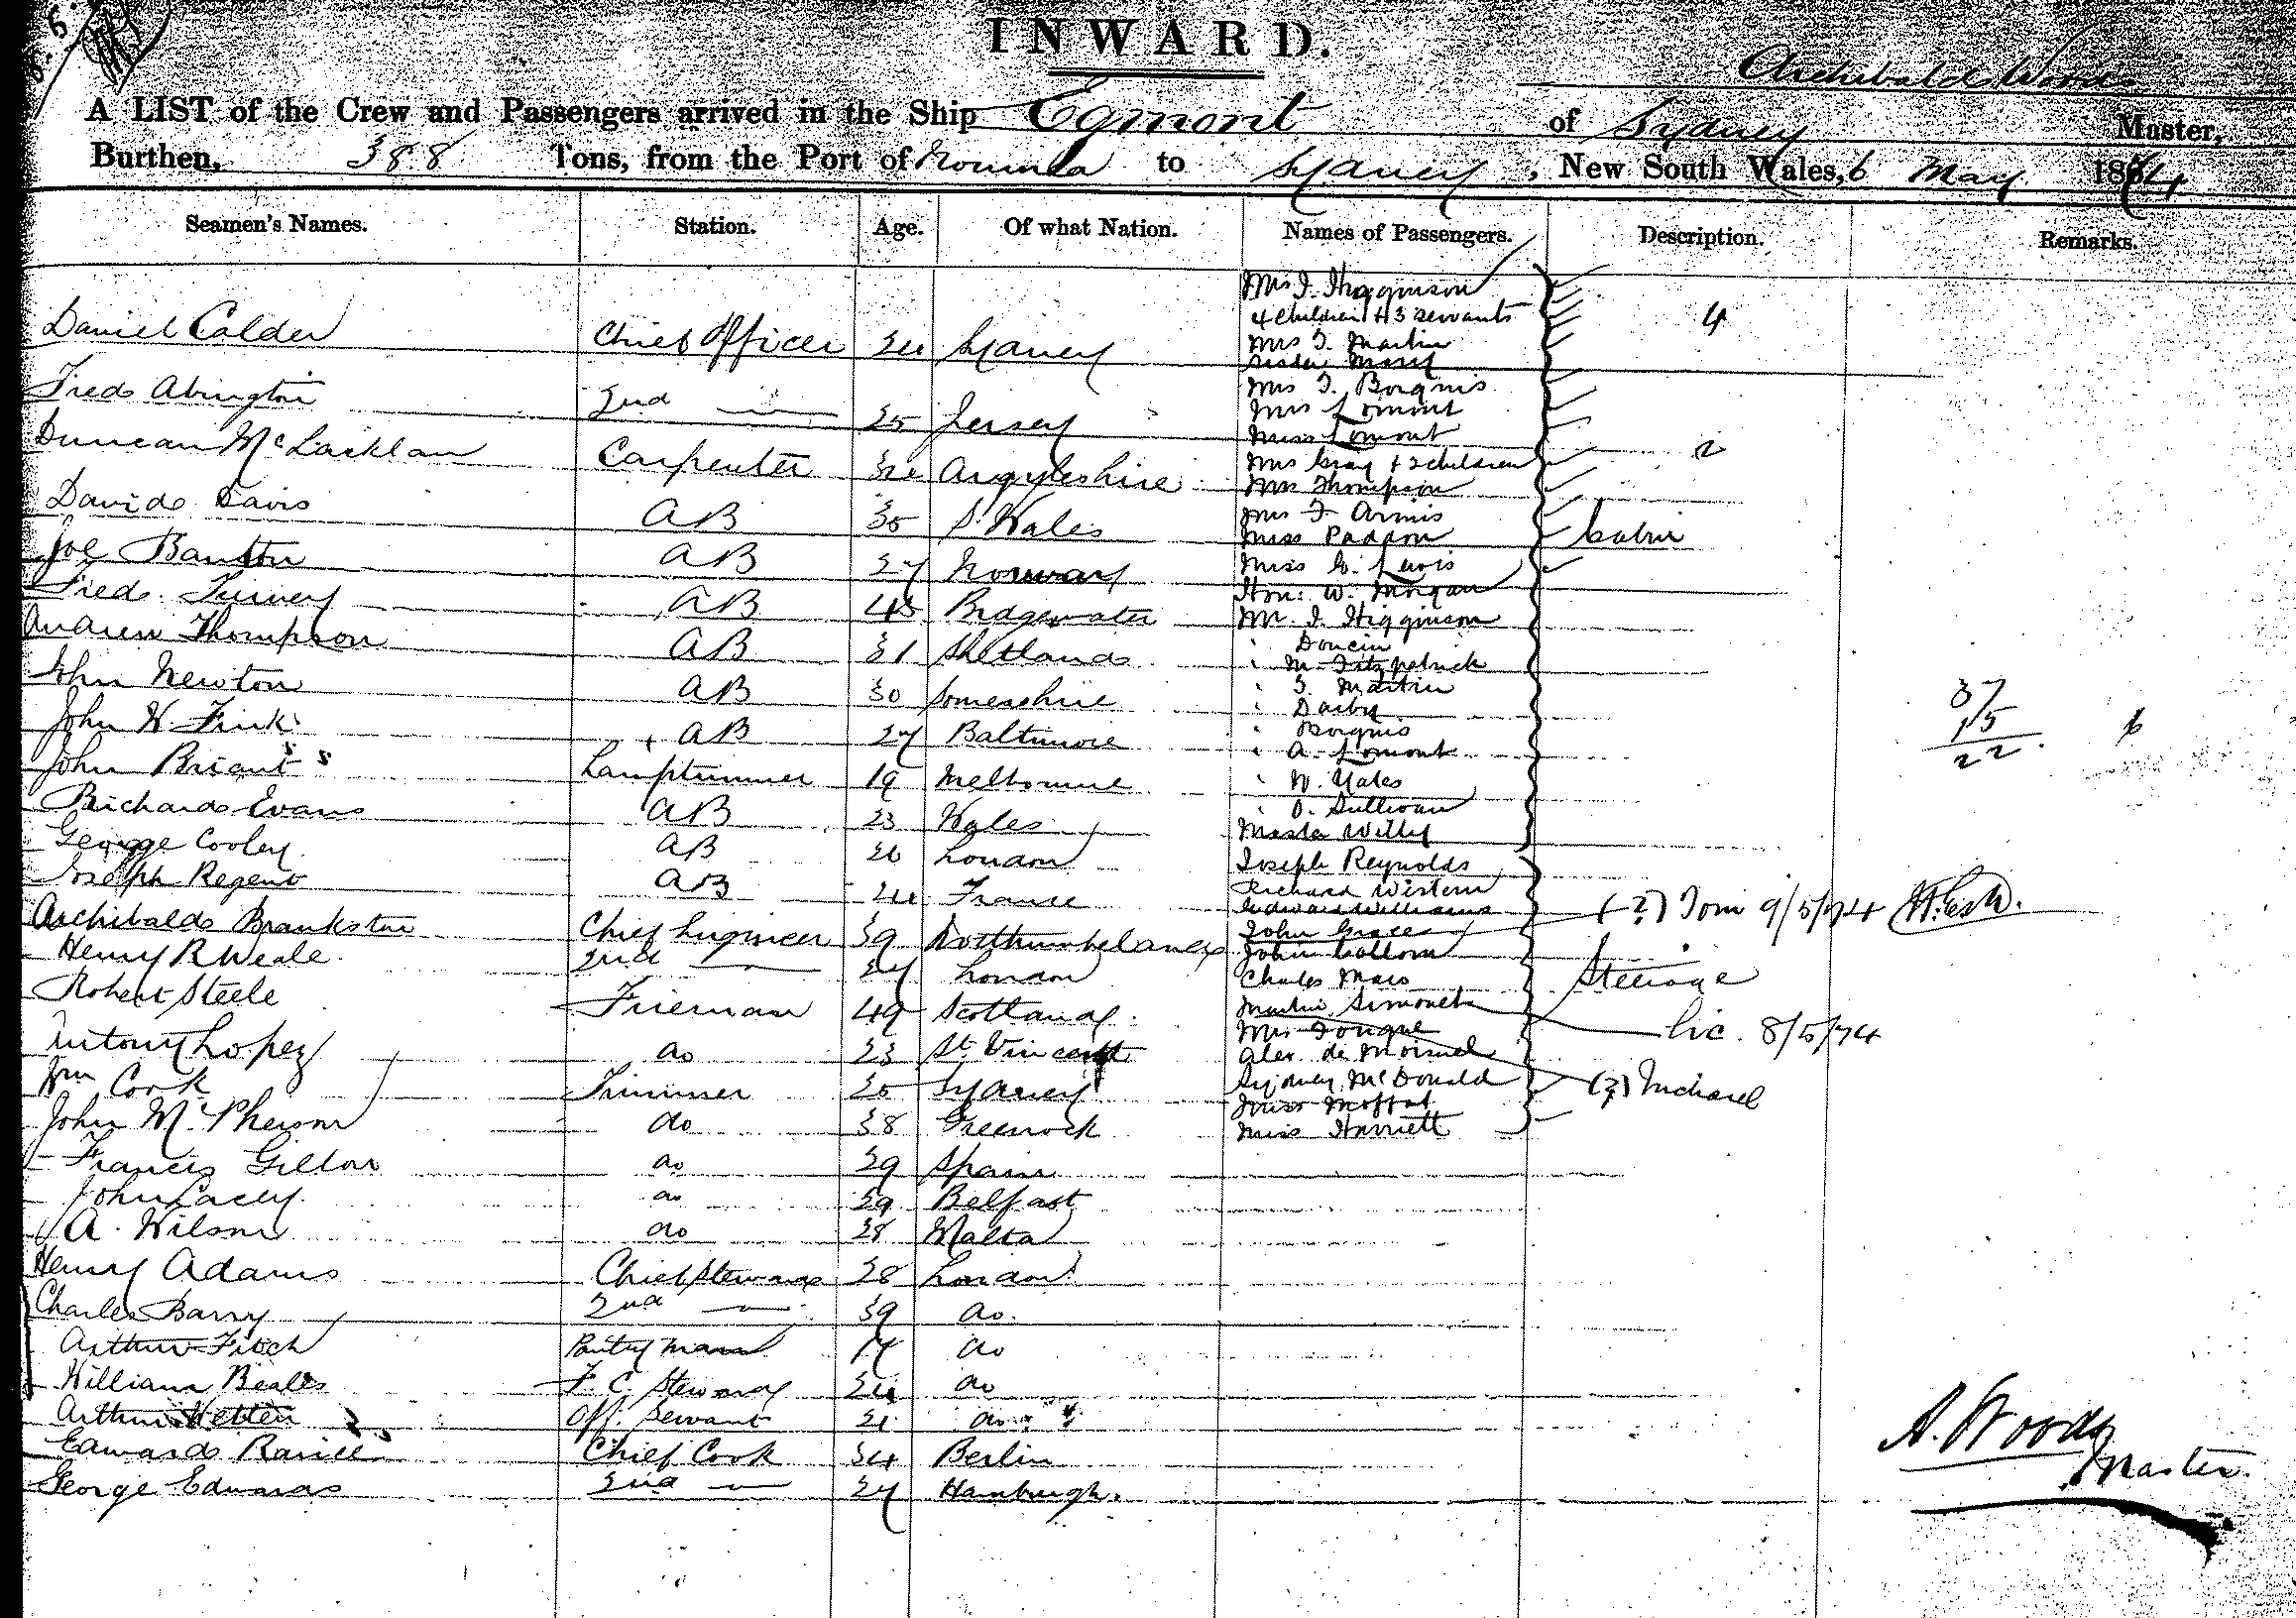 INWARD.
Archibald Woods
A LIST of the Crew and Passengers arrived in the Ship Egmont of Sydney Master,
Burthen, 388 Tons, from the Port of Noumea to Sydney, New South Wales, 6 May 1874
Seamen's Names. Station. Age. Of what Nation. Names of Passengers. Description. Remarks.
Mrs J. Higginson
4 children & 3 servants 4
Daniel Calder Chief Officer Sydney Mrs J. Martin
Mrs J. Borgnis
Fred Abington 2nd — 25 Jersey Mrs Lomont
Miss Lomont 2
Duncan McLachlan Carpenter Argyleshire Mrs Gray & 2 children
Mrs Thompson
David Davis AB 30 S. Wales Mrs F Armis
Miss Paddon Cabin
Joe AB 27 Norway Miss G. Lewis
Fred. Turvey AB 45 Bridgewater Hon. W. Morgan
Mr. J. Higginson
Andrew Thompson AB 31 Shetlands " Doucin
" M. Fitzpatrick
John Newton AB 30 " J. Martin 37
" Darby 15
John W. Fink AB 27 Baltimore " Borgnis 22
" A. Lomont
John Briant Lamptrimmer 19 Melbourne " W. Yates
Richard Evans AB 23 Wales " O. Sullivan
Master Willy
George Cooley AB 26 London Joseph Reynolds
Joseph Regeno AB France Richard Western
Edward Williams (?) Tom 9/5/74
Archibald Brankston Chief Engineer 39 Northumberland John Grace
Henry R Weale 2nd — 27 London John
Charles Steerage
Robert Steele Fireman 49 Scotland Martin Simonet
Mrs Fonque lic. 8/5/74
Antony Lopez do 23 St. Vincent Alex. de
Wm Cook Trimmer 25 Sydney Sydney McDonald (?) Michael
John McPherson do 38 Greenock Miss Moffat
Miss Harriett
Francis do 29 Spain
John Lacey do 39 Belfast
A. Wilson do 28 Malta
Henry Adams Chief Steward 28 London
Charles Barry 2nd — 39 do.
Arthur Finch Pantry man 17 do
William Beales F. C. Steward 24 do
Arthur Off. Servant 21 do
Edward Chief Cook 34 Berlin
George Edwards 2nd — 27 Hamburgh.
A. Woods
Master.